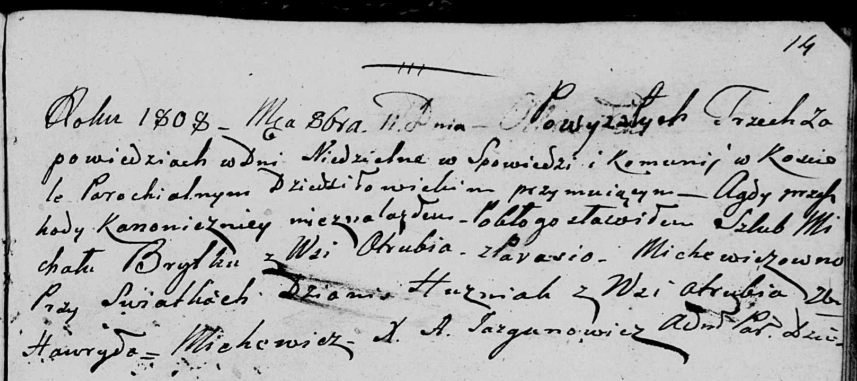 14
Roku 1808 - Mca 8bra. 11. Dnia - Powyższych Trzech Za
powiedziach w Dni Niedzielne w Spowiedzi i Komunij w Kościo
le Parochialnym Dziedziłowickim przymuiącym - Agdy przesz
kody Kanoniczney nieznalazłem - Pobłogosławiłem Szlub Mi
chału Bryłku z Wsi Otrubia - z Parasio - Michewiczowno
Przy Swiatkach Dzianis Huzniak z Wsi Otrubia
Hawryło = Michewicz - X. A. Jazgunowicz Adm Par. Dzie.